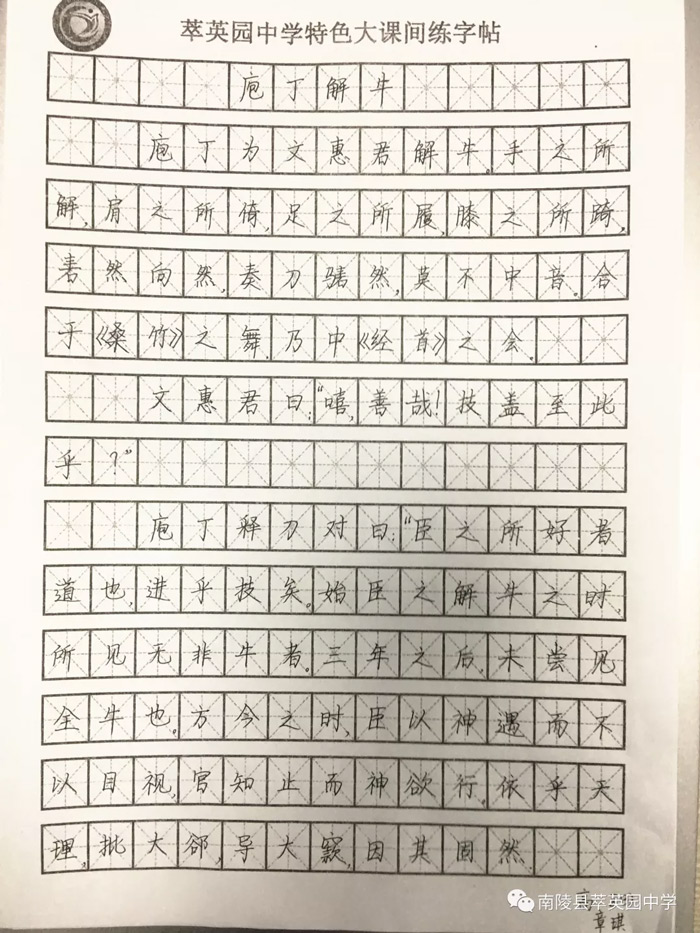 萃英园中学特色大课间练字帖
庖丁解牛
庖丁为文惠君解牛。手之所
解，肩之所倚，足之所履，膝之所踦，
砉然向然，奏刀騞然，莫不中音。合
于《桑竹》之舞。乃中《经首》之会。
文惠君曰：“嘻，善哉！技盖至此
乎？”
庖丁释刀对曰：“臣之所好者
道也，进乎技矣。始臣之解牛之时，
所见无非牛者。三年之后，未尝见
全牛也。方今之时，臣以神遇而不
以目视，官知止而神欲行。依乎天
理，批大郤，导大窾，因其固然
章琪
南陵县萃英园中学